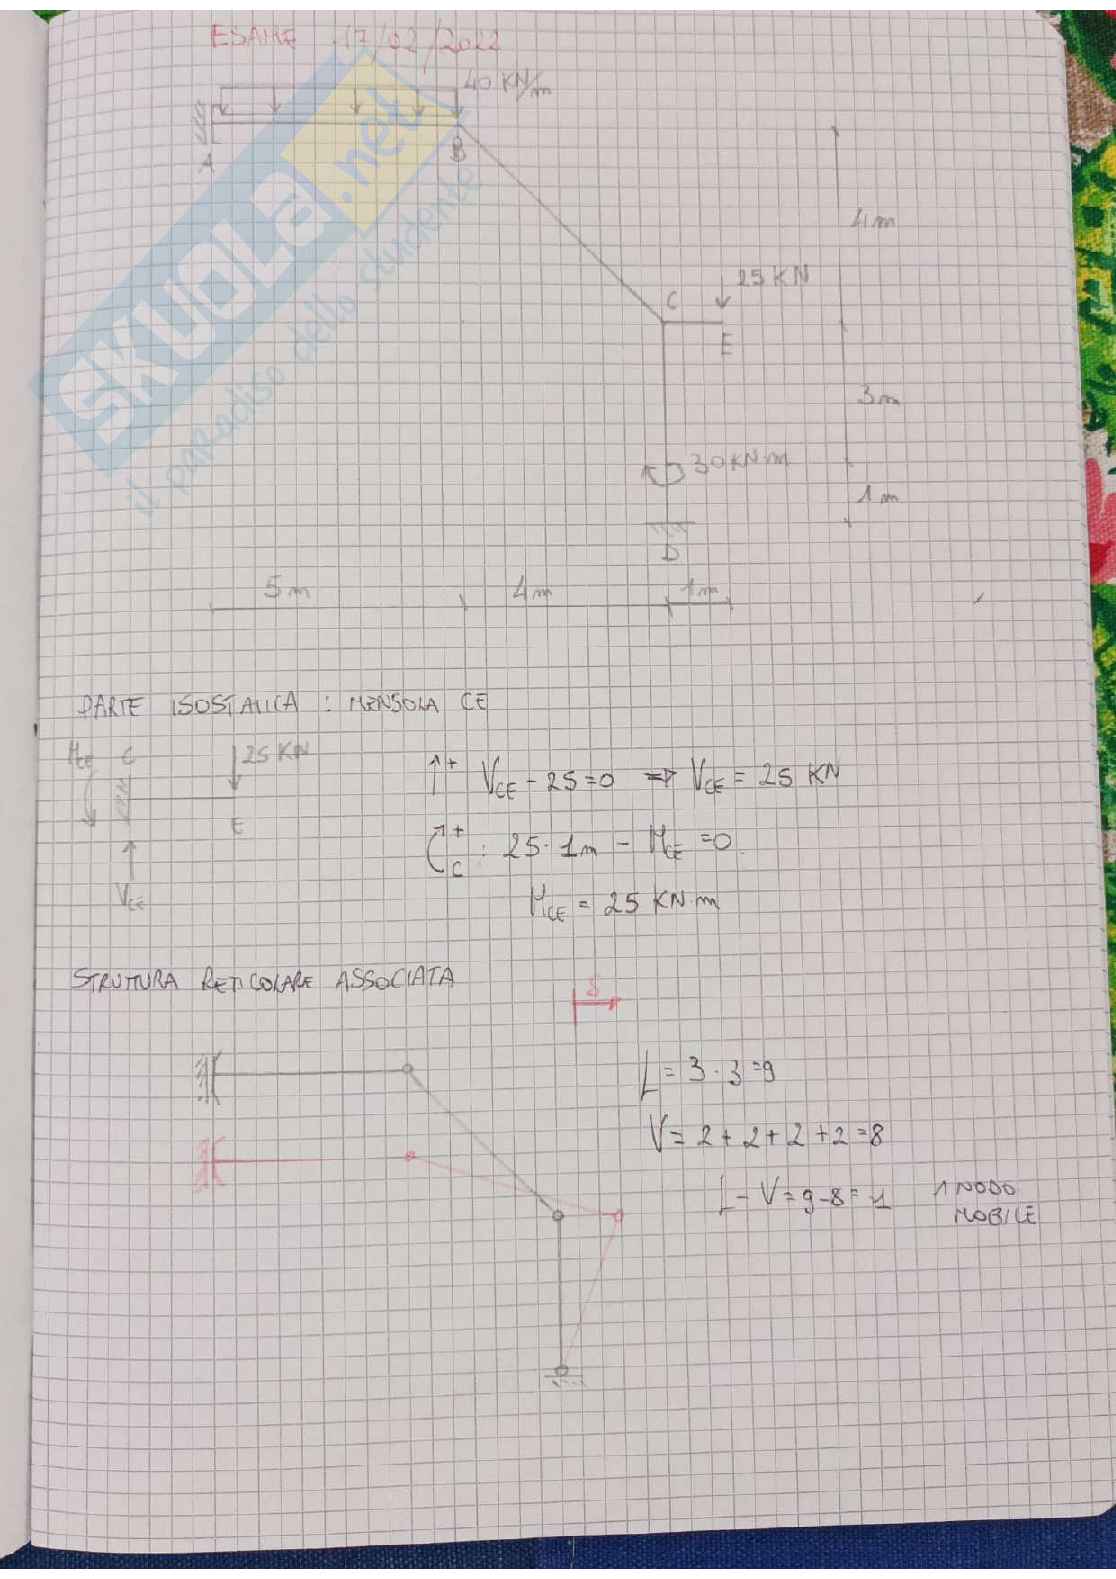 ESAME 17/02/2022
40 KN/m
A
B
4m
25 KN
C
E
3m
30 KN·m
1m
D
5m
4m
1m
SKUOLA.net
il paradiso dello studente
PARTE ISOSTATICA : MENSOLA CE
M_CE C 25 KN
↑+ V_CE - 25 = 0 => V_CE = 25 KN
E
C+ : 25 · 1m - M_CE = 0
V_CE
M_CE = 25 KN·m
STRUTTURA RETICOLARE ASSOCIATA
δ
L = 3 · 3 = 9
V = 2 + 2 + 2 + 2 = 8
L - V = 9 - 8 = 1 1 NODO
MOBILE